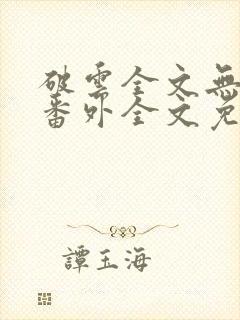 破雲全文無
番外全文免
譚玉海